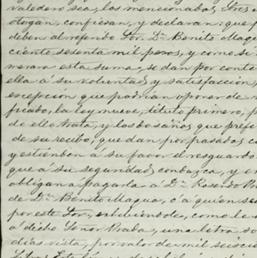 valedero sea, los mencionados Sres
otorgan, confiesan, y declaran: que
deben al referido Sor. Dn. Benito Magu
ciento sesenta mil pesos, y como si
mera esta suma, se dan por conte
ella a su voluntad y satisfaccion,
excepcion que podrian oponer de
ficado, la ley nueve, titulo primero, p
de ello trata, y los dos años que prefi
de su recibo, que dan por pasados c
y estienden a su favor el resguardo
que a su seguridad conduzca, y en
obligan a pagarla a Dn. Rosendo
de Dn. Benito Magua, o a quien su
por este Sor, exhibiendo, como le
a dicho Señor una letra
dias vista, por valor de mil seiscie